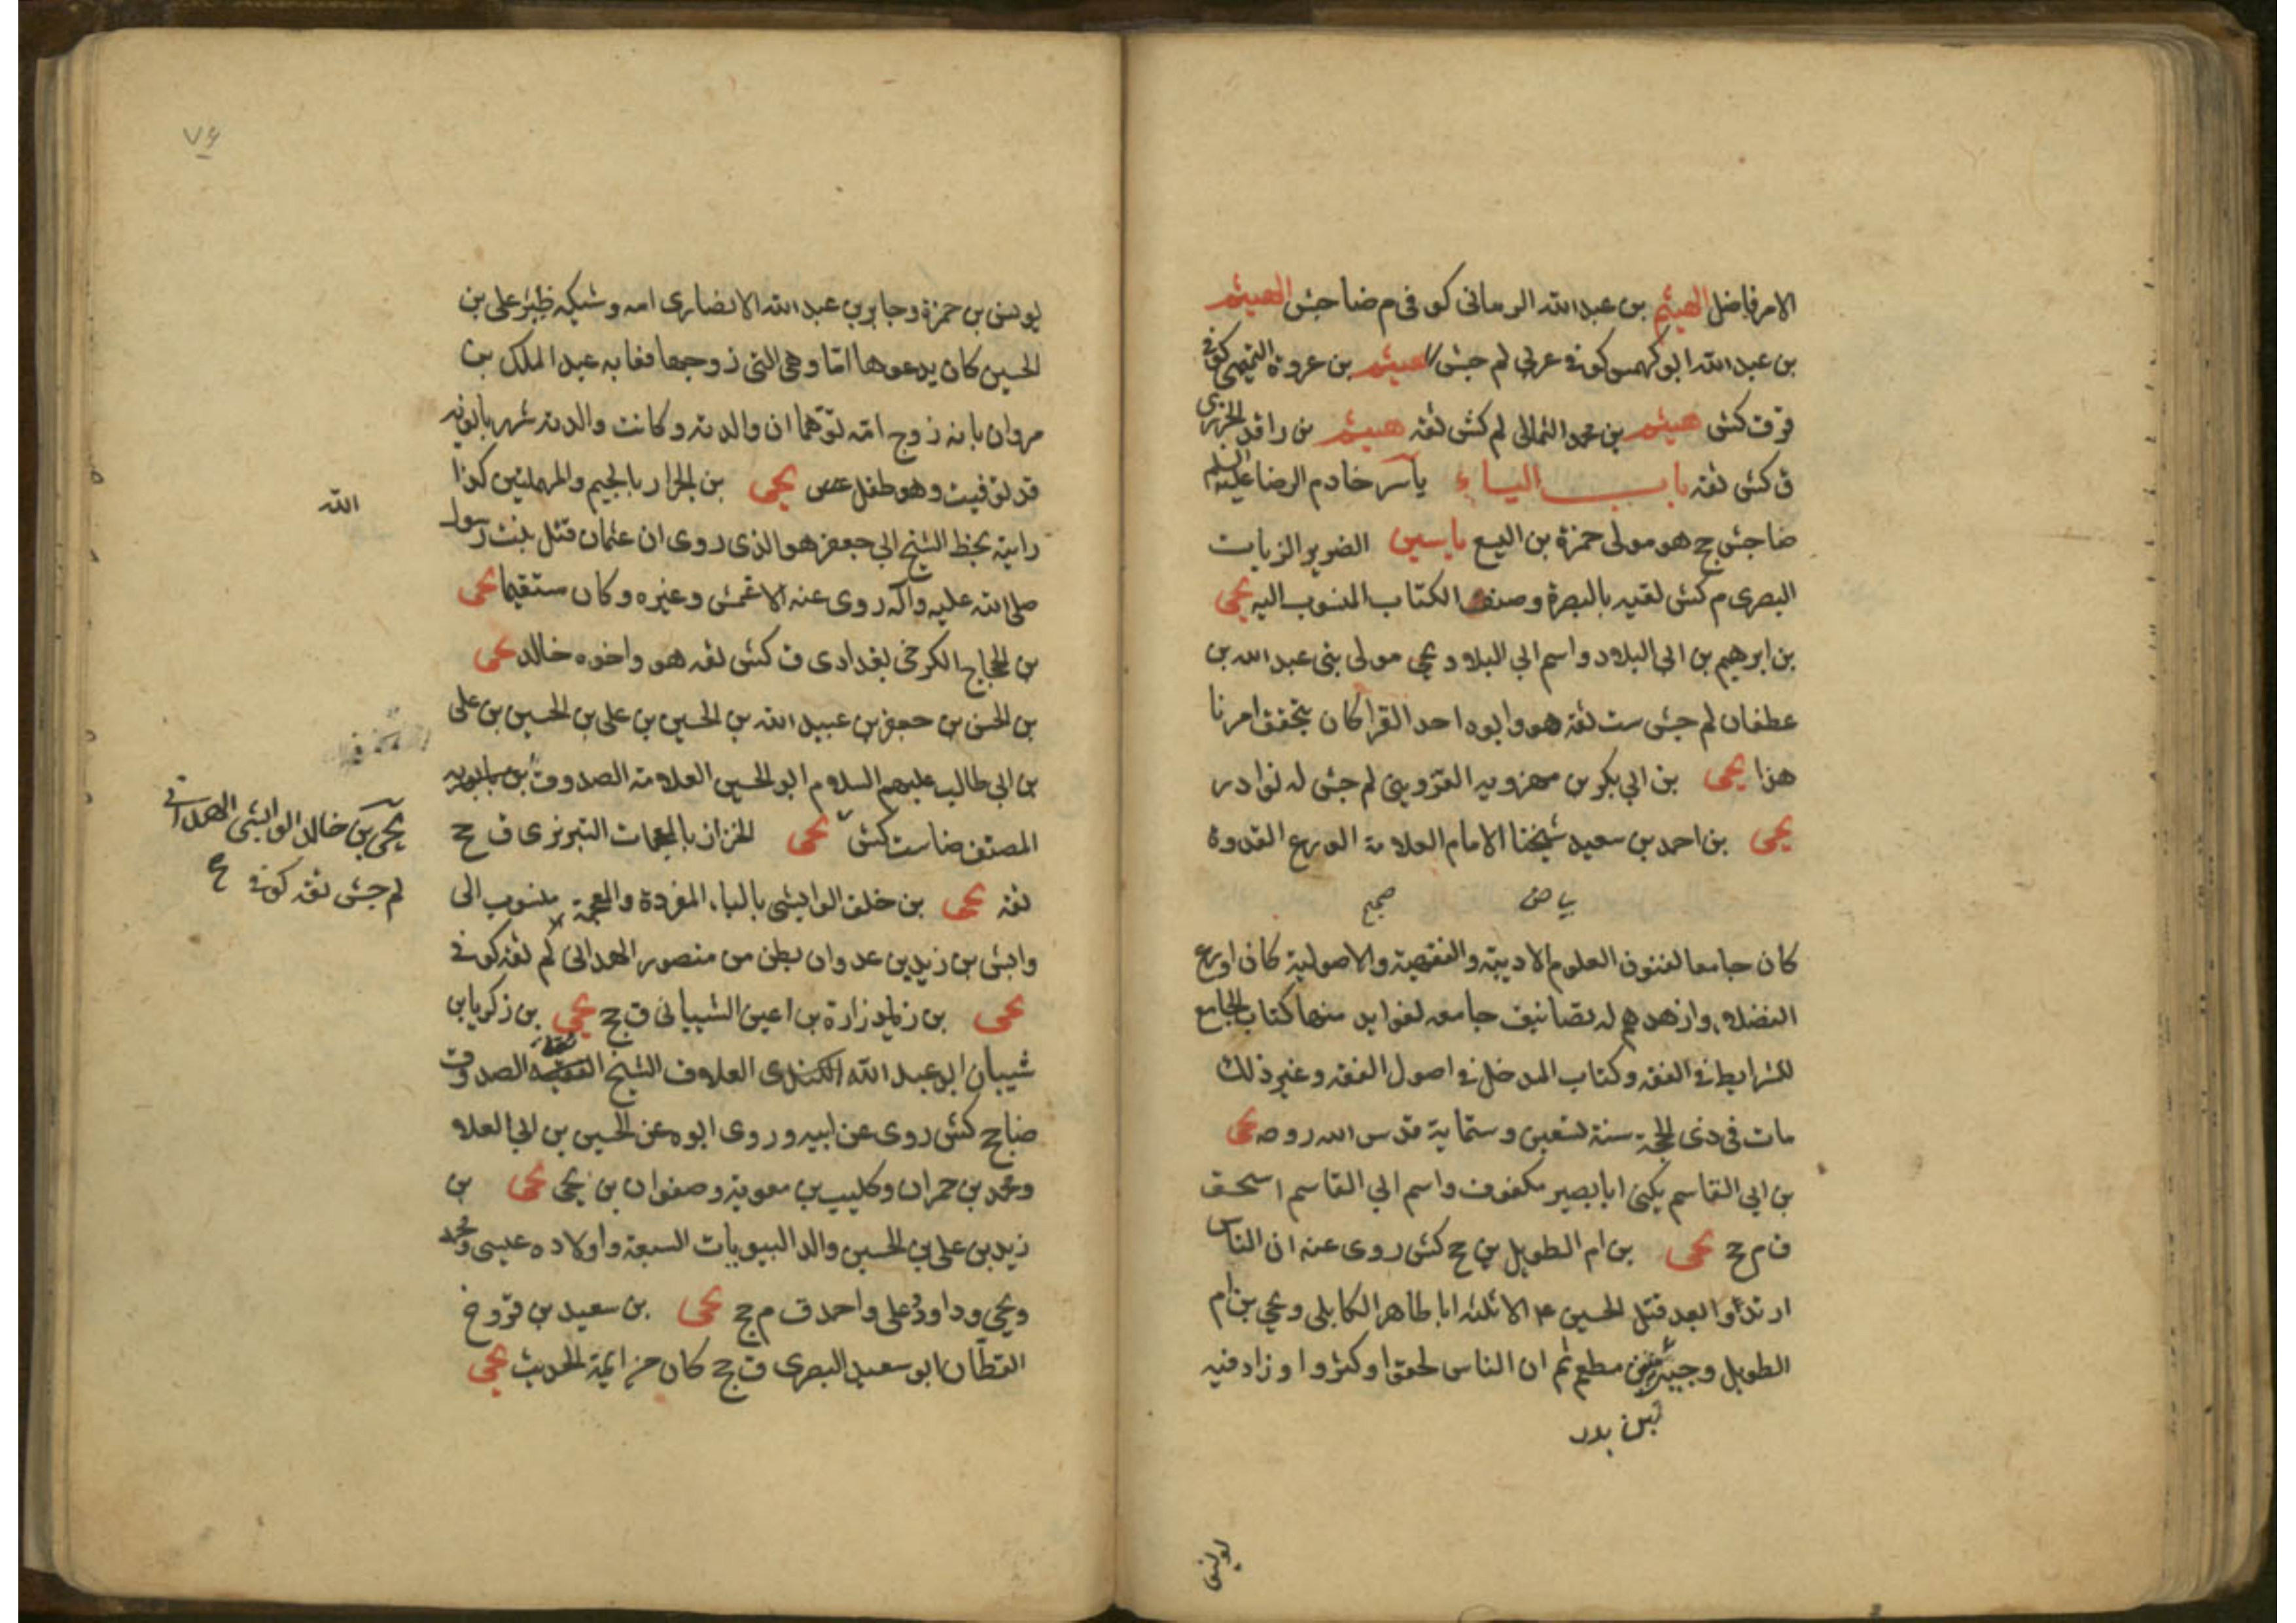 الامر فاضل الهيثم بن عبد الله الرماني كوفي م ضا جش الهيثم
بن عبد الله ابو كهمس كوفي عربي لم جش الهيثم بن عروة التميمي كوفي
ق ق كش هيثم بن محمد الثمالي لم كش ثقه هيثم بن واقد الجزري
ق كش ثقه باب الياء ياسر خادم الرضا عليه السلم
ضا جش ج هو مولى حمزة بن اليسع ياسين الضرير الزيات
البصرى م كش لقيه بالبصرة وصنف الكتاب المنسوب اليه يحيى
بن ابرهيم بن ابى البلاد واسم ابى البلاد يحيى مولى بنى عبد الله بن
عطفان لم جش ست ثقة هو وابوه احد القرا كان يتحقق امرنا
هذا يحيى بن ابى بكر بن مهرويه القزوينى لم جش له نوادر
يحيى بن احمد بن سعيد شيخنا الامام العلامة الورع القدوة
بياض صحيح
كان جامعا لفنون العلوم الادبية والفقهية والاصولية كان اورع
الفضلاء وازهدهم له تصانيف جامعه لفوايد منها كتاب الجامع
للشرايط فى الفقه وكتاب المدخل فى اصول الفقه وغير ذلك
مات فى ذى الحجة سنة تسعين وستماية قدس الله روحه يحيى
بن ابى القاسم يكنى ابا بصير مكفوف واسم ابى القاسم اسحق
ق م جخ يحيى بن ام الطويل ين جخ كش روى عنه ان الناس
ارتدوا بعد قتل الحسين ع الا ثلثه ابا طاهر الكابلى ويحيى بن ام
الطويل وجبير بن مطعم ثم ان الناس لحقوا وكثروا وزاد فيه
يونس
٧۶
يونس بن حمزة وجابر بن عبد الله الانصارى امه وشيكه ظئر على بن
الحسين كان يدعوها امّا وهى التى زوجها فعابه عبد الملك بن
مروان بانه زوج امّه توهّما ان والدته وكانت والدته شهربانويه
قد توفيت وهو طفل يحيى بن الجرار بالجيم والمهملتين كذا
رايته بخط الشيخ ابى جعفر هو الذى روى ان عثمان قتل بنت رسول
الله
صلى الله عليه وآله روى عنه الاعمش وغيره وكان مستقيما يحيى
بن الحجاج الكرخى بغدادى ق كش ثقه هو واخوه خالد يحيى
بن الحسن بن جعفر بن عبيد الله بن الحسين بن على بن الحسين بن على
بن ابى طالب عليهم السلام ابو الحسين العلامة الصدوق
المصنف ضا ست كش يحيى الخزاز بالمعجمات التبريزى ق جخ
ثقه يحيى بن خلف الوابشى بالباء المفردة والمعجمة منسوب الى
وابش بن زيد بن عدوان بطن من منصور الهمدانى لم ثقه كوفى
يحيى بن خالد الوابشى الهمدانى
لم جش ثقه كوفى
يحيى بن زرارة بن اعين الشيبانى ق جخ يحيى بن زكريا بن
شيبان ابو عبد الله الكندى العلاف الشيخ الصدوق
ضا جخ كش روى عن ابيه وروى ابوه عن الحسين بن ابى العلا
ومحمد بن حمران وكليب بن معوية وصفوان بن يحيى يحيى بن
زيد بن على بن الحسين والد البيويات السبعة واولاده عيسى ومحمد
ويحيى وداود وعلى واحمد ق م جخ يحيى بن سعيد بن فرّوخ
القطّان ابو سعيد البصرى ق جخ كان من ايمة الحديث يحيى